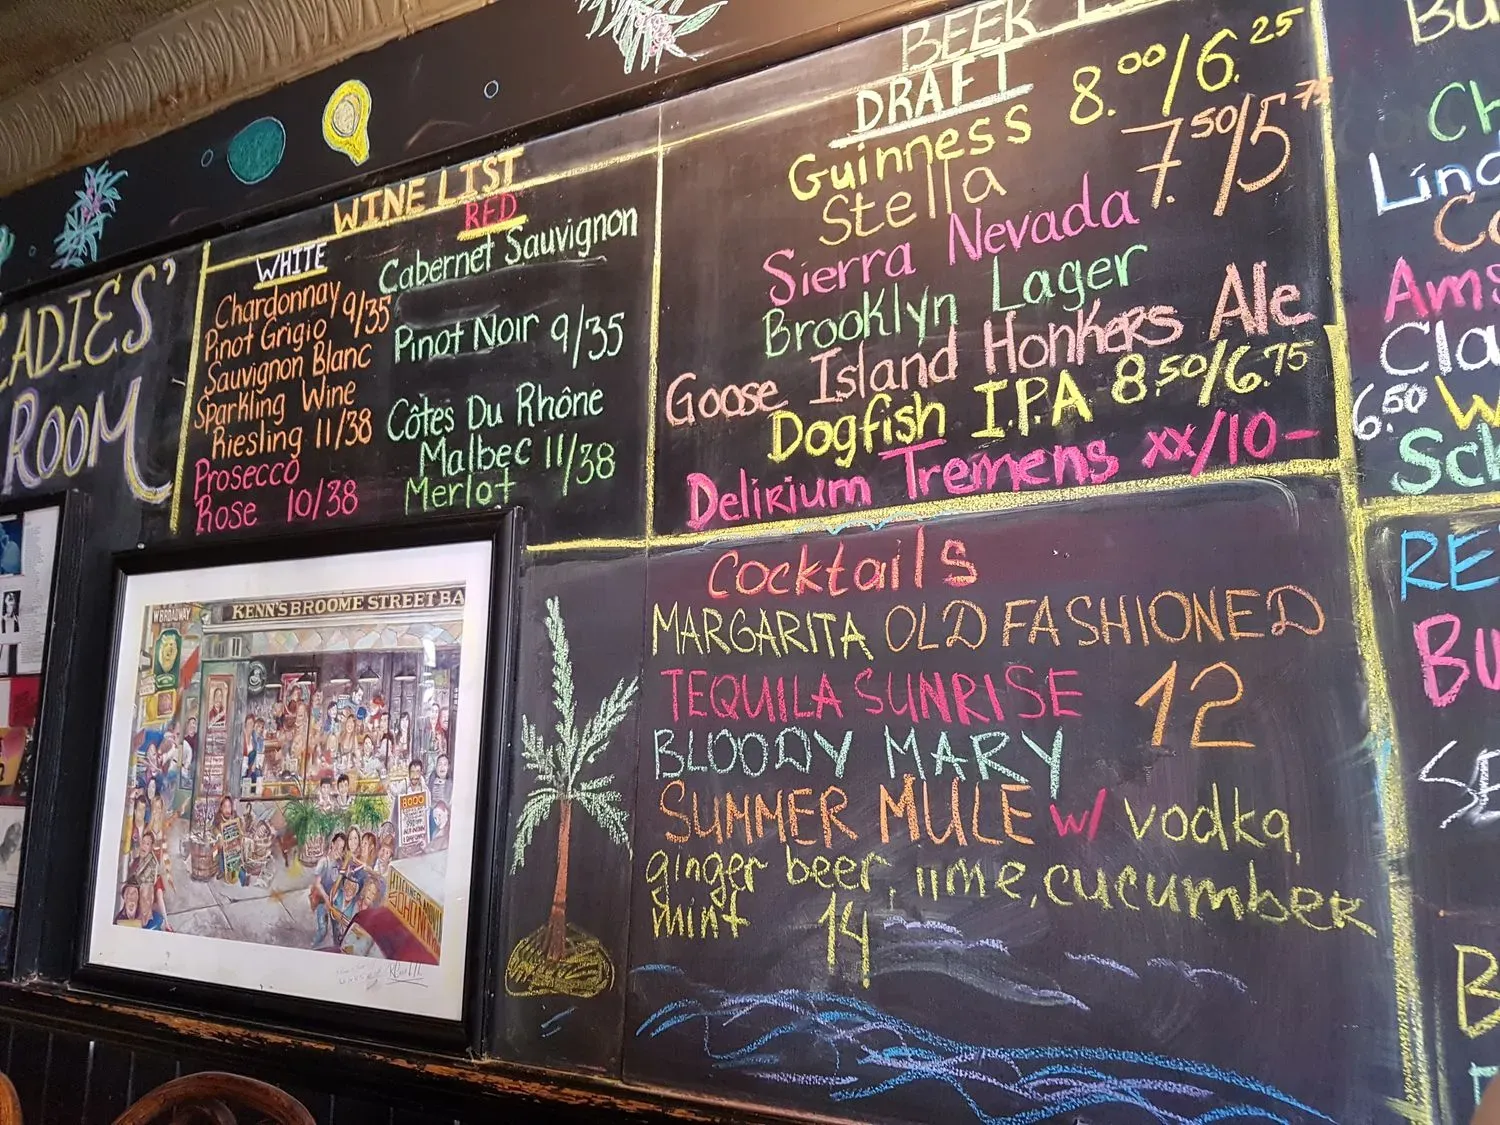 LADIES'
ROOM
WINE LIST
WHITE
Chardonnay 9/35
Pinot Grigio
Sauvignon Blanc
Sparkling Wine
Riesling 11/38
Prosecco
Rose 10/38
RED
Cabernet Sauvignon
Pinot Noir 9/35
Côtes Du Rhône
Malbec 11/38
Merlot
BEER
DRAFT
Guinness 8.00/6.25
Stella 7.50/5.75
Sierra Nevada
Brooklyn Lager
Goose Island Honkers Ale
Dogfish I.P.A 8.50/6.75
Delirium Tremens xx/10-
Cocktails
MARGARITA OLD FASHIONED
TEQUILA SUNRISE 12
BLOODY MARY
SUMMER MULE w/ vodka,
ginger beer, lime, cucumber
mint 14
6.50
W. BROADWAY
KENN'S BROOME STREET BA